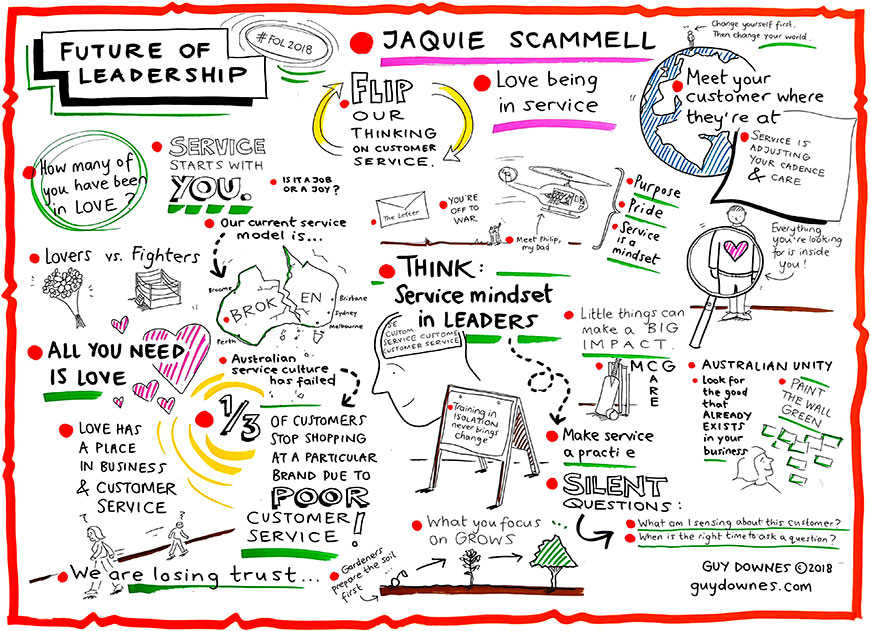 FUTURE OF
LEADERSHIP
#FOL2018
JAQUIE SCAMMELL
Change yourself first.
Then change your world.
FLIP
OUR
THINKING
ON CUSTOMER
SERVICE.
Love being
in service
Meet your
customer where
they're at
SERVICE IS
ADJUSTING
YOUR CADENCE
& CARE
How many of
you have been
in LOVE?
SERVICE
STARTS WITH
YOU.
IS IT A JOB
OR A JOY?
The Letter
YOU'RE
OFF TO
WAR
Meet Philip,
my Dad
Purpose
Pride
Service
is a
mindset
Everything
you're looking
for is inside
you!
Lovers vs. Fighters
Our current service
model is...
Broome
BROK EN
Brisbane
Sydney
Melbourne
Perth
THINK:
Service mindset
in LEADERS
SE
CUSTOM
SERVICE CUSTOME
CUSTOMER SERVICE
Little things can
make a BIG
IMPACT.
MCG
A
R
E
ALL YOU NEED
IS LOVE
Australian
service culture
has failed
1/3
OF CUSTOMERS
STOP SHOPPING
AT A PARTICULAR
BRAND DUE TO
POOR
CUSTOMER
SERVICE!
LOVE HAS
A PLACE
IN BUSINESS
& CUSTOMER
SERVICE
Training in
ISOLATION
never brings
change
Make service
a practi e
AUSTRALIAN UNITY
Look for
the good
that
ALREADY
EXISTS
in your
business
PAINT
THE WALL
GREEN
SILENT
QUESTIONS:
What am I sensing about this customer?
When is the right time to ask a question?
?
We are losing trust...
What you focus
on GROWS
Gardeners
prepare the soil
first
GUY DOWNES ©2018
guydownes.com